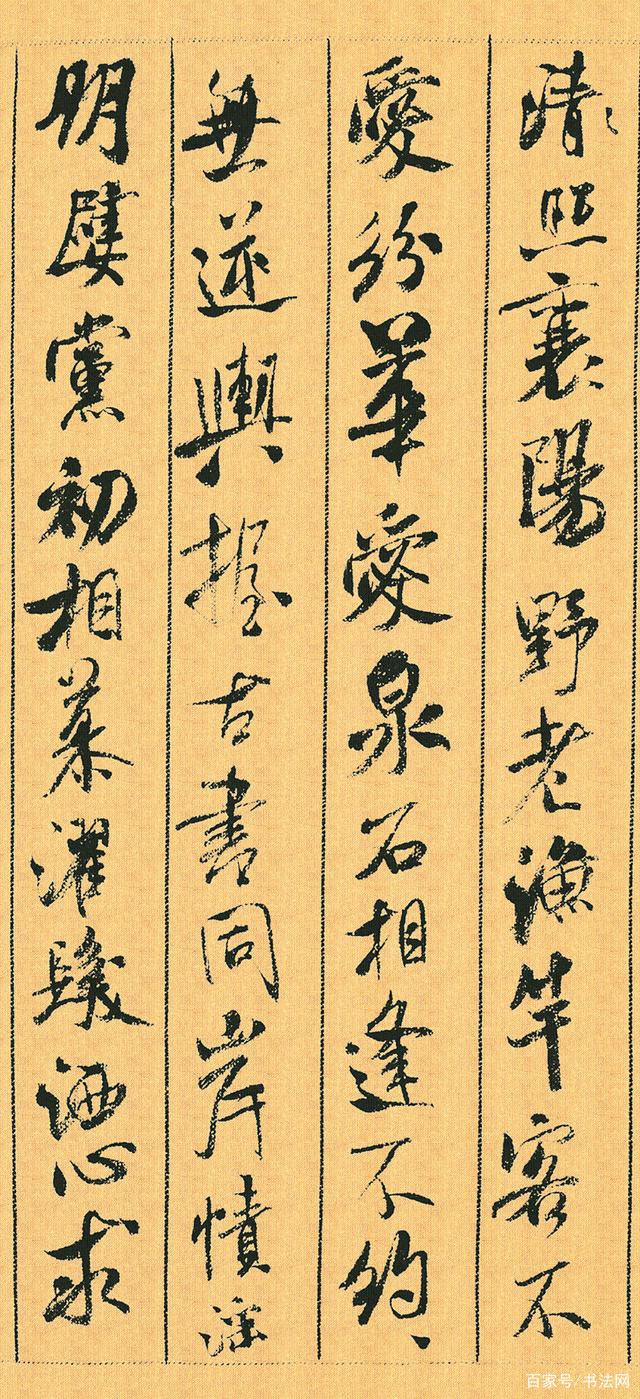 清照襄陽野老漁竿客不
愛紛華愛泉石相逢不約、
無逆輿握古書同岸幘淫
朋嬖黨初相慕濯髮洒心求
百家号/书法网